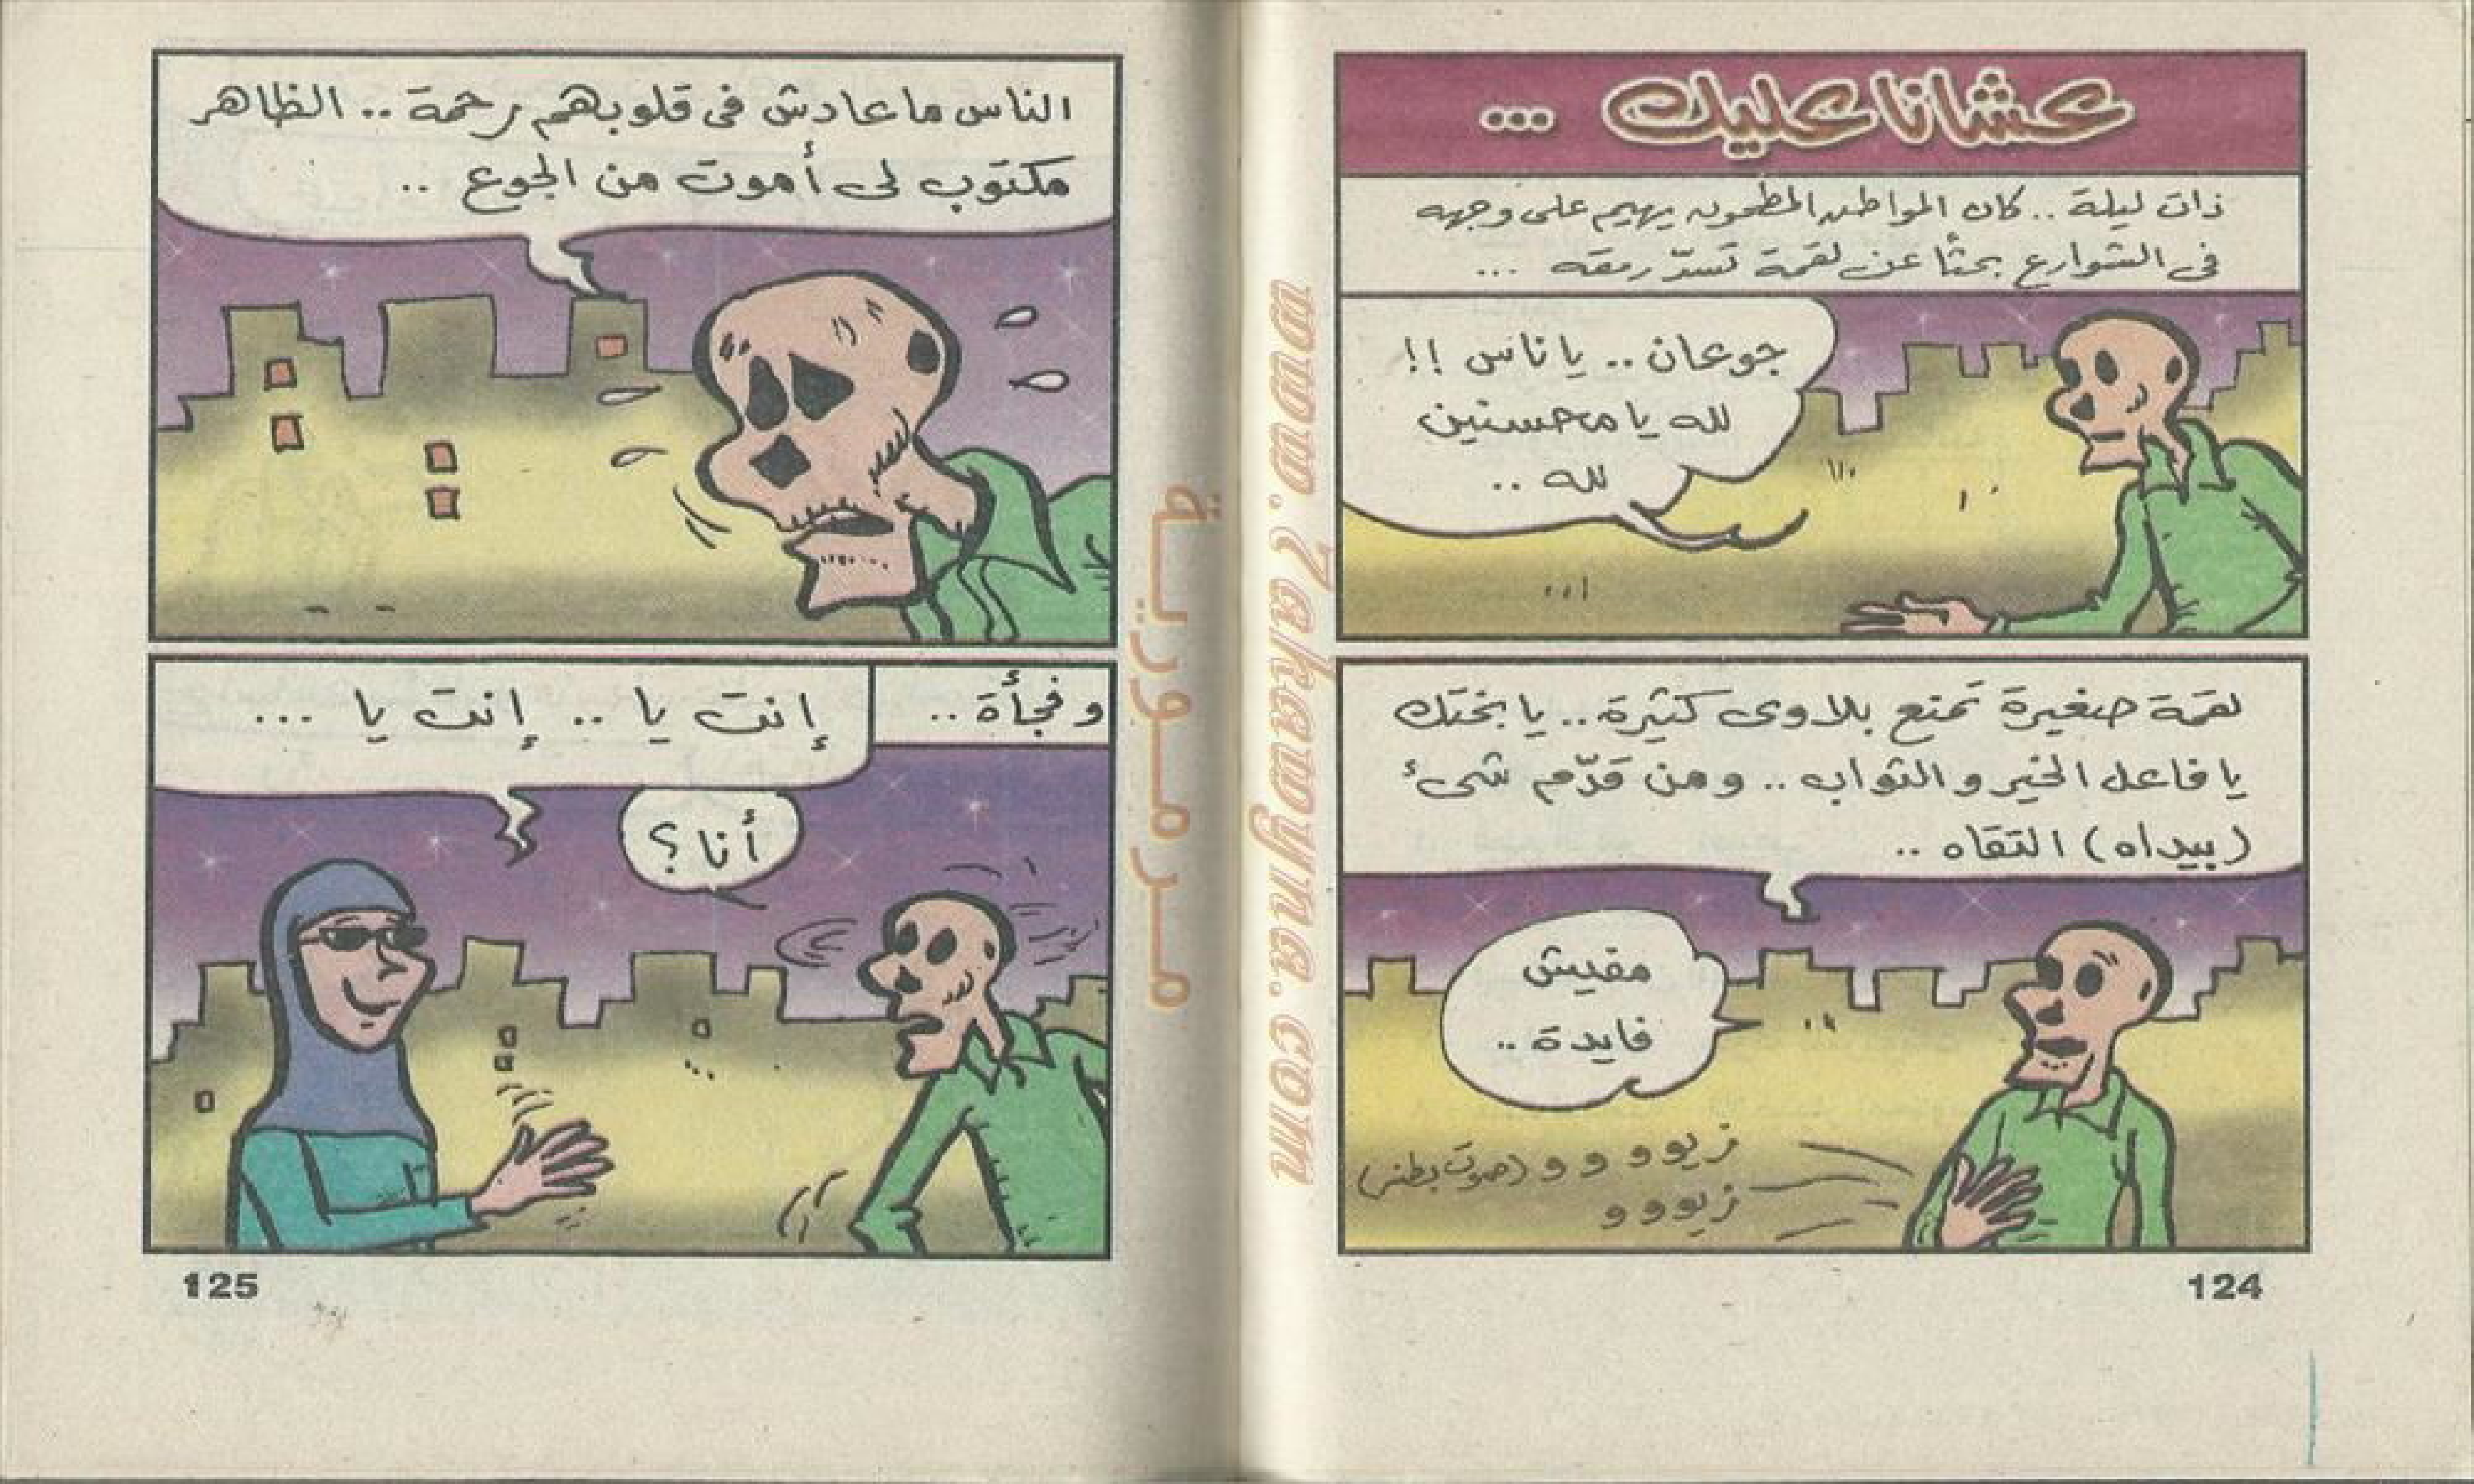 عشانا عليك ...
ذات ليلة .. كان المواطن المطحون يهيم على وجهه
فى الشوارع بحثًا عن لقمة تسدّ رمقه ...
جوعان .. يا ناس !!
لله يا محسنين
لله ..
لقمة صغيرة تمنع بلاوى كتيرة .. يا بختك
يا فاعل الخير والثواب .. ومن قدّم شىء
(بيداه) التقاه ..
مفيش
فايدة ..
زيوو و و و (صوت بطنى)
زيوو و
124
الناس ما عادش فى قلوبهم رحمة .. الظاهر
مكتوب لى أموت من الجوع ..
وفجأة ..
إنت يا .. إنت يا ...
أنا ؟
125
مرمورية
www.7akawyna.com